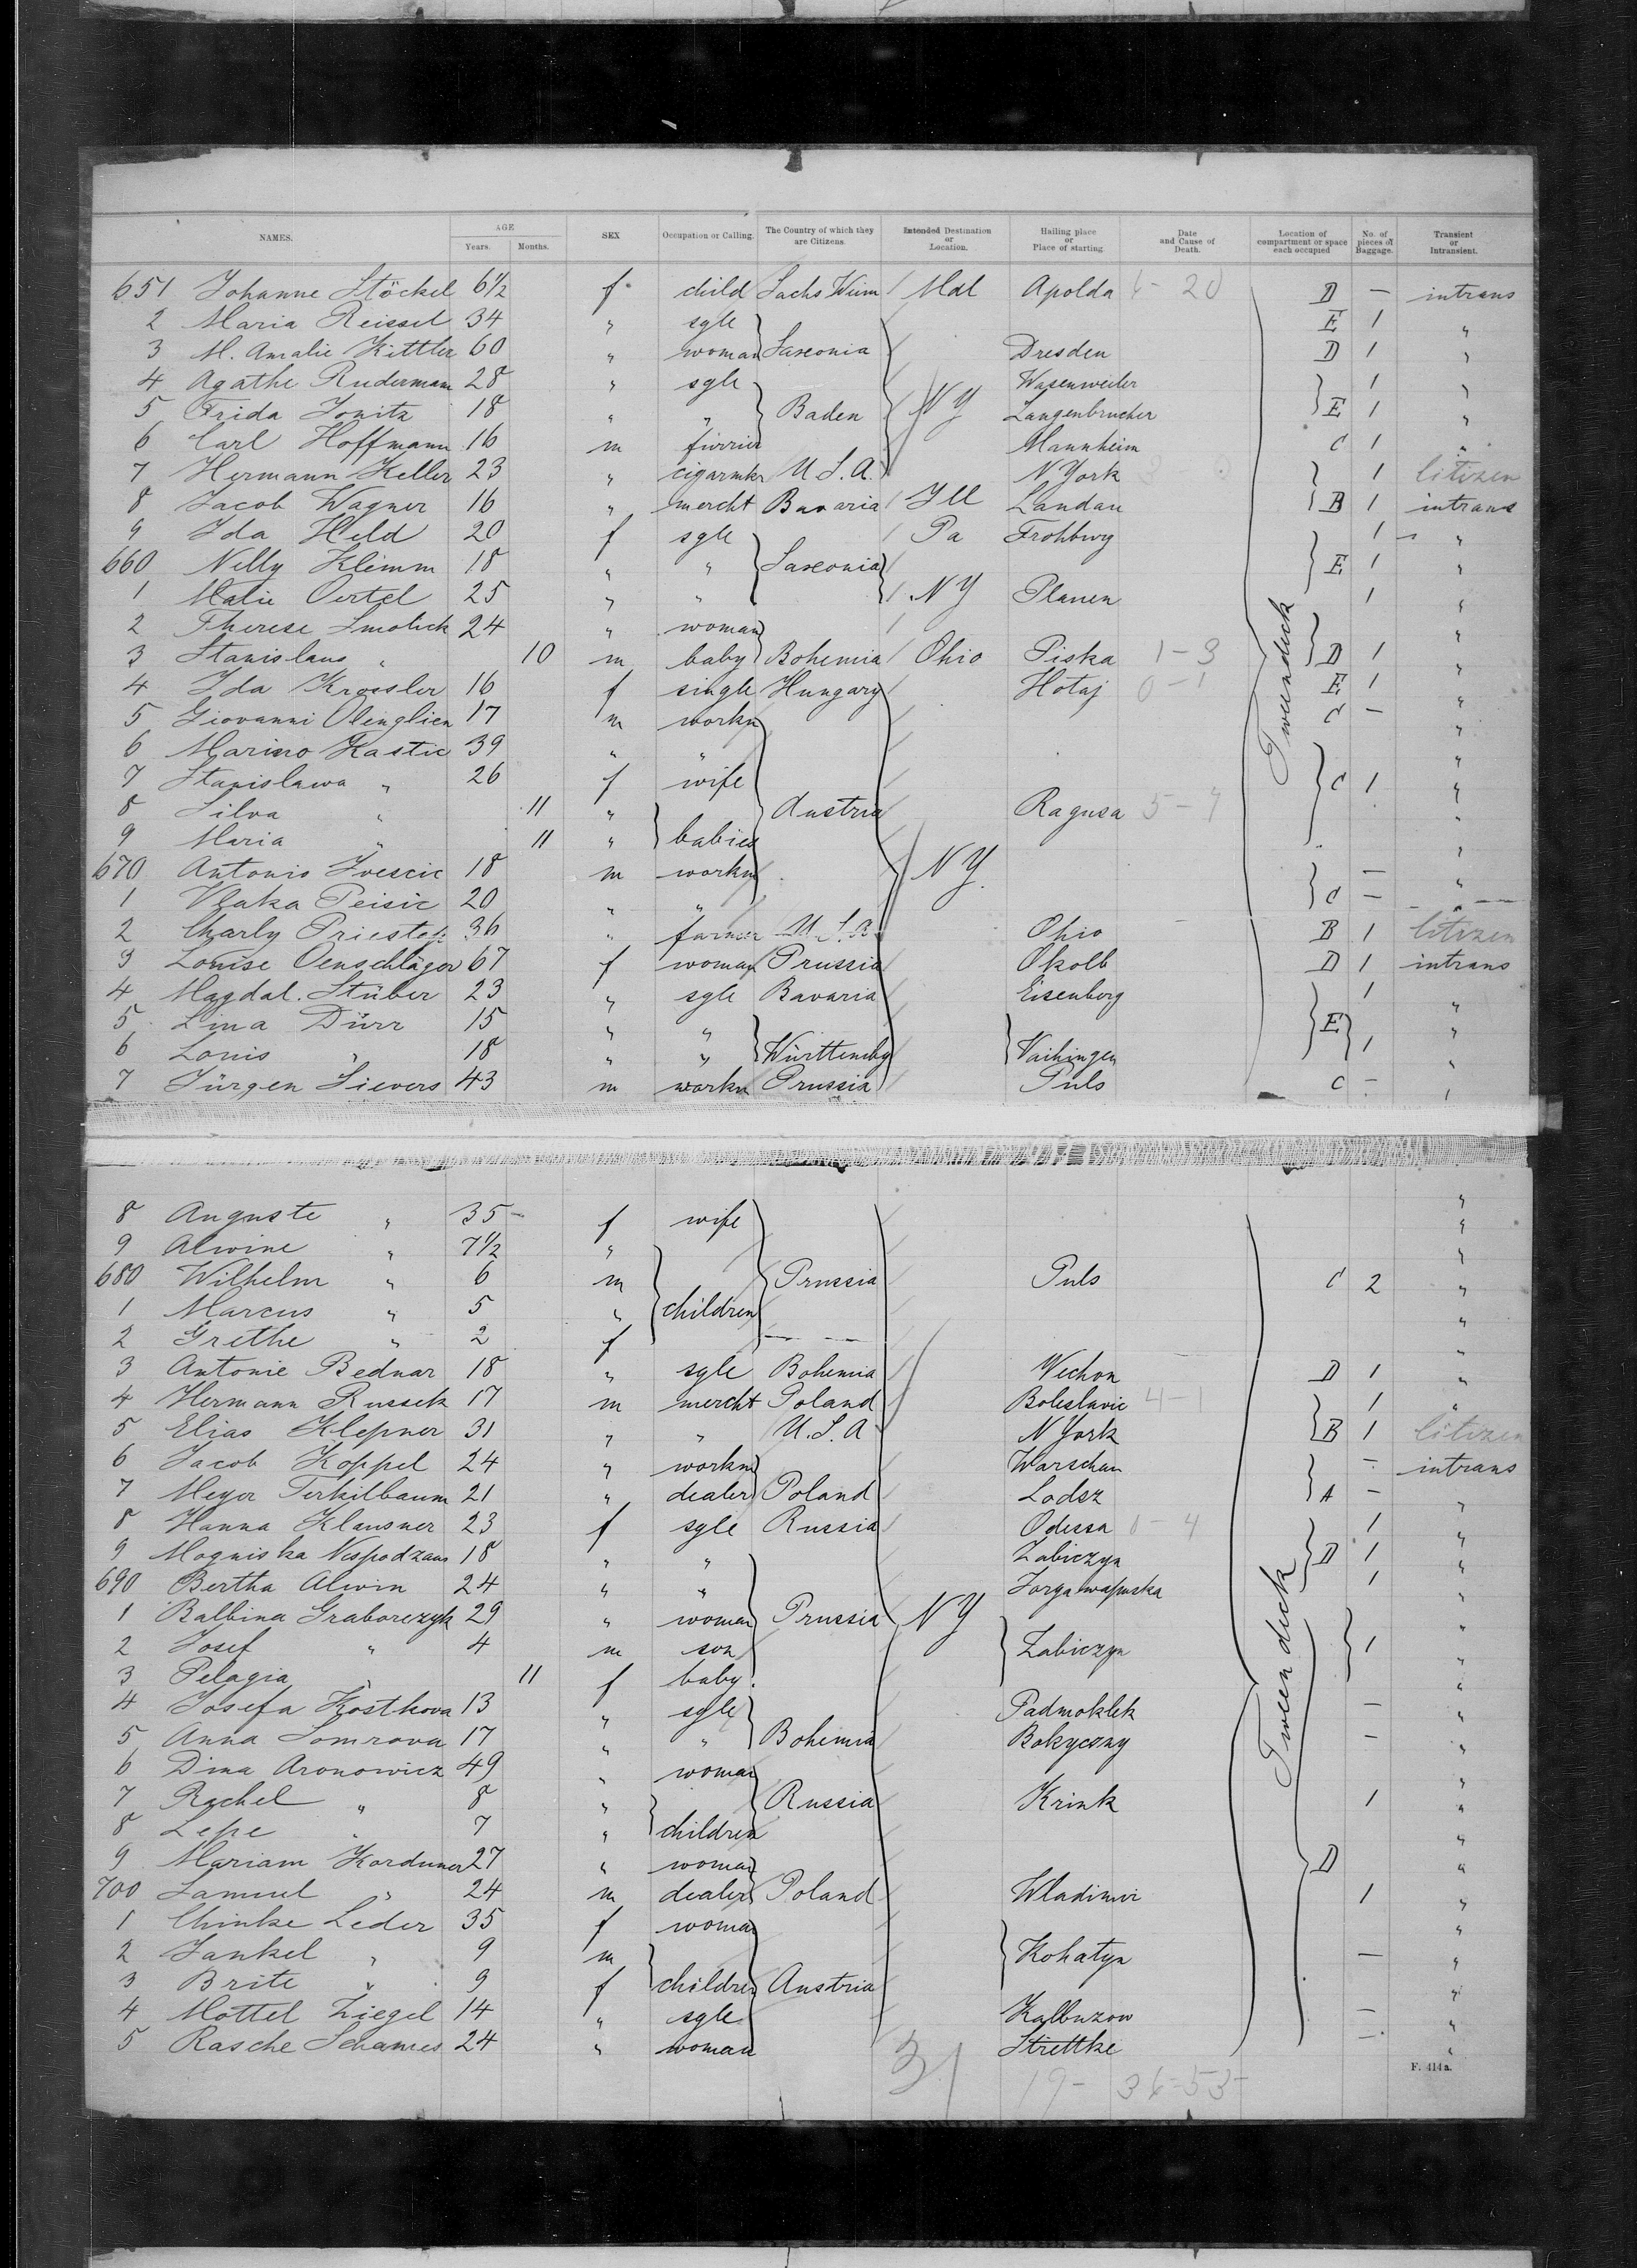 NAMES. AGE SEX Occupation or Calling. The Country of which they are Citizens. Intended Destination or Location. Hailing place or Place of starting. Date and Cause of Death. Location of compartment or space each occupied No. of pieces of Baggage. Transient or Intransient.
Years. Months.
651 Johanne Stöckel 6½ f child Sachs Weim Md Apolda 20 D — intrans
2 Maria Reissel 34 " sgle E 1 "
3 M. Amalie Kittler 60 " woman Saxonia Dresden D 1 "
4 Agathe Rudermann 28 " sgle Wasenweiler 1 "
5 Frida Jonitz 18 " " Baden NY Langenbrucher E 1 "
6 Carl Hoffmann 16 m furrier Mannheim C 1 "
7 Hermann Keller 23 " cigarmkr U.S.A. N York 1 Citizen
8 Jacob Wagner 16 " mercht Bavaria Ill Landau B 1 intrans
9 Ida Held 20 f sgle Pa Frohburg 1 "
660 Nelly Klemm 18 " " Saxonia E 1 "
1 Malie Oertel 25 " " NY Plauen 1 "
2 Therese Smolick 24 " woman "
3 Stanislaus " 10 m baby Bohemia Ohio Piska 1-3 D 1 "
4 Ida Krossler 16 f single Hungary Hotaj 0-1 E 1 "
5 Giovanni 17 m workn C — "
6 Marino Kastic 39 " " "
7 Stanislawa " 26 f wife C 1 "
8 Silva " 11 " Austria Ragusa 5-7 "
9 Maria " 11 " babies "
670 Antonio Ivescic 18 m workn NY — "
1 Vlaka Peisic 20 " " C — "
2 Charly Priester 36 " farmer U.S.A. Ohio B 1 Citizen
3 Louise Oenschläger 67 f woman Prussia Okolb D 1 intrans
4 Magdal. Stüber 23 " sgle Bavaria Eisenberg 1 "
5 Lina Dürr 15 " " E "
6 Louis " 18 " " Württembg Vaihingen 1
7 Jürgen Sievers 43 m workn Prussia Puls C — "
Tweendeck
8 Auguste " 35 f wife "
9 Alwine " 7½ " "
680 Wilhelm " 6 m Prussia Puls C 2 "
1 Marcus " 5 " children "
2 Grethe " 2 f "
3 Antonie Bednar 18 " sgle Bohemia Wechon D 1 "
4 Hermann Russek 17 m mercht Poland Boleslavic 4-1 1 "
5 Elias Klepner 31 " " U.S.A N York B 1 Citizen
6 Jacob Koppel 24 " workn Warschau — intrans
7 Meyer Terkilbaum 21 " dealer Poland Lodsz A — "
8 Hanna Klausner 23 f sgle Russia Odessa 0-4 1 "
9 Mogniska 18 " " Zabiczyn D 1 "
690 Bertha Alwin 24 " " 1 "
1 Balbina Graborczyk 29 " woman Prussia NY "
2 Josef " 4 m son Zabiczyn 1 "
3 Pelagia " 11 f baby "
4 Josefa Kosthova 13 " sgle Padmoklek — "
5 Anna Somrova 17 " " Bohemia Bokyczny — "
6 Dina Aronowicz 49 " woman "
7 Rachel " 8 " Russia Krink 1 "
8 Lepe " 7 " children "
9 Mariam Korduner 27 " woman D "
700 Samuel " 24 m dealer Poland Wladimir 1 "
1 Chinke Leder 35 f woman "
2 Jankel " 9 m Kohatyn — "
3 Brite " 9 f children Austria "
4 Mottel Ziegel 14 " sgle Kalbuzow — "
5 Rasche Schames 24 " woman Strettke — "
Tween deck
F. 414a.